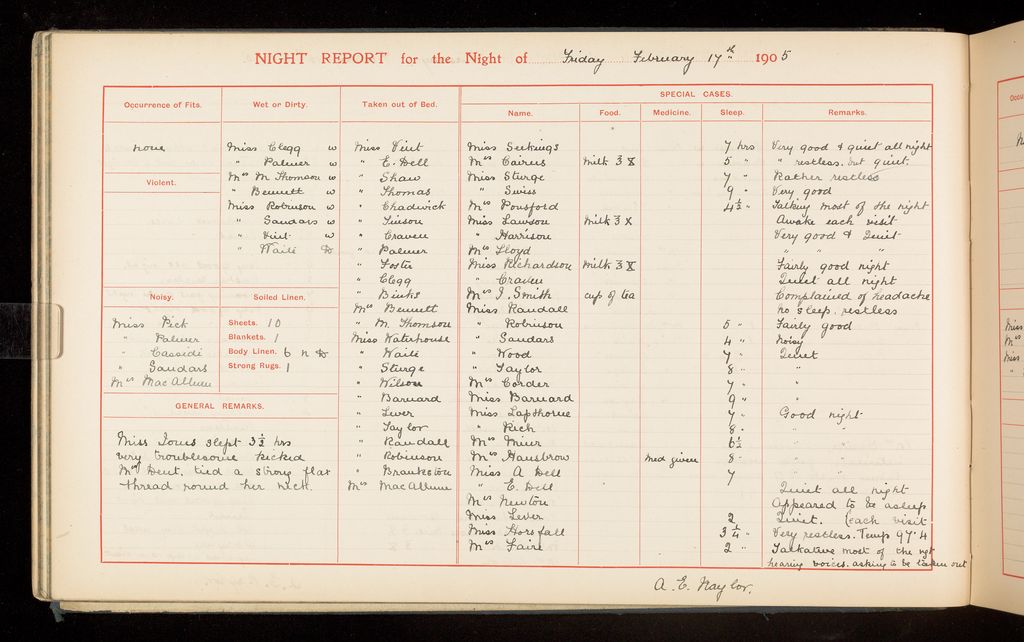 NIGHT REPORT for the Night of Friday February 17th 1905
Occurrence of Fits.
none
Violent.
Noisy.
Miss Pick
" Palmer
" Cassidi
" Saudars
Mrs MacAllum
Wet or Dirty.
Miss Clegg w
" Palmer w
Mrs M Thomson w
" Bennett w
Miss Robinson w
" Saudars w
" Vint w
" Waite
Soiled Linen.
Sheets. 10
Blankets. 1
Body Linen. 6 n
Strong Rugs. 1
GENERAL REMARKS.
Miss Jones slept 3½ hrs
very troublesome kicked
Mrs Dent. tied a strong flax
thread round her neck.
Taken out of Bed.
Miss Vint
" E. Dell
" Shaw
" Thomas
" Chadwick
" Craven
" Palmer
" Foster
" Clegg
" Binks
Mrs Bennett
" M. Thomson
Miss Waterhouse
" Waite
" Sturge
" Wilson
" Barnard
" Lever
" Taylor
" Randall
" Robinson
" Brankston
Mrs MacAllum
SPECIAL CASES.
Name. Food. Medicine. Sleep. Remarks.
Miss Seekings 7 hrs Very good & quiet all night
Mrs Cairns Milk 5 " " restless. but quiet.
Miss Sturge 7 " Rather restless
" Swiss 9 " Very good
Mrs Ponsford 4½ " Talking most of the night
Miss Lawson Milk Awake each visit
" Harrison Very good & Quiet
Mrs Lloyd " " "
Miss Richardson Milk Fairly good night
" Craven Quiet all night
Mrs J. Smith cup of tea Complained of headache
Miss Randall no sleep. restless
" Robinson 5 " Fairly good
" Saudars 4 " Noisy
" Wood 7 " Quiet
" Taylor 8 " "
Mrs Corder 7 " "
Miss Barnard 9 "
Miss Lapthorne 7 " Good night
" Rich 8 " " "
Mrs Minr 6½ " "
Mrs Hansbrow Med given 8 " " "
Miss A Dell 7 " "
" E. Dell Quiet all night
Mrs Newton Appeared to be asleep
Miss Lever 2 Quiet. (each visit
Miss Horsfall 3¼ " Very restless. Temp 97.4
Mrs Faire 2 " Talkative most of the ngt
hearing voices. asking to be taken out
A. E. Naylor.